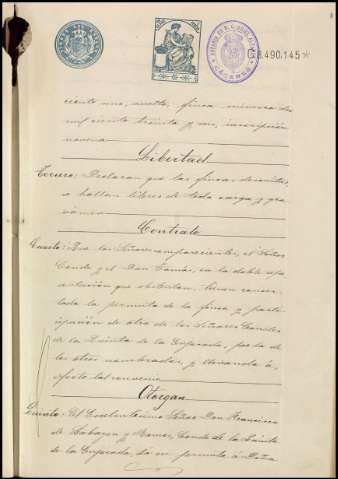 G.8.490.145*
ciento uno, vuelto, finca número dos
mil ciento treinta y uno, inscripción
novena
Libertad
Tercero: Declaran que las fincas descritas,
se hallan libres de toda carga y gra-
vámen
Contrato
Cuarto: Que los Señores comparecientes, el Señor
Conde y el Don Tomás, en la doble repre-
sentación que ostentan, tienen concer-
tada la permuta de la finca y parti-
cipación de otra de los Señores Condes
de la Quinta de la Enjarada, por la de
los otros nombrados, y llevando á
efecto tal convenio
Otorgan
Quinto: El Excelentísimo Señor Don Francisco
de Carvajal y Conde de la Quinta
de la Enjarada, dá en permuta á Doña